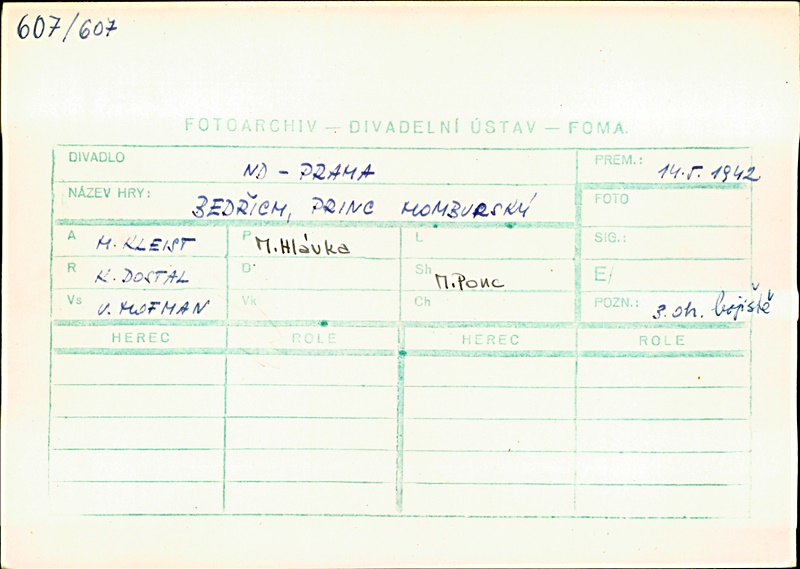 607/607
FOTOARCHIV — DIVADELNÍ ÚSTAV — FOMA.
DIVADLO ND - PRAHA PREM.: 14.5. 1942
NÁZEV HRY: BEDŘICH, PRINC HOMBURSKÝ FOTO
A H. KLEIST P M. Hlávka L SIG.:
R K. DOSTAL D Sh M. Ponc E/
Vs V. HOFMAN Vk Ch POZN.: 3. oh. bojiště
HEREC ROLE HEREC ROLE